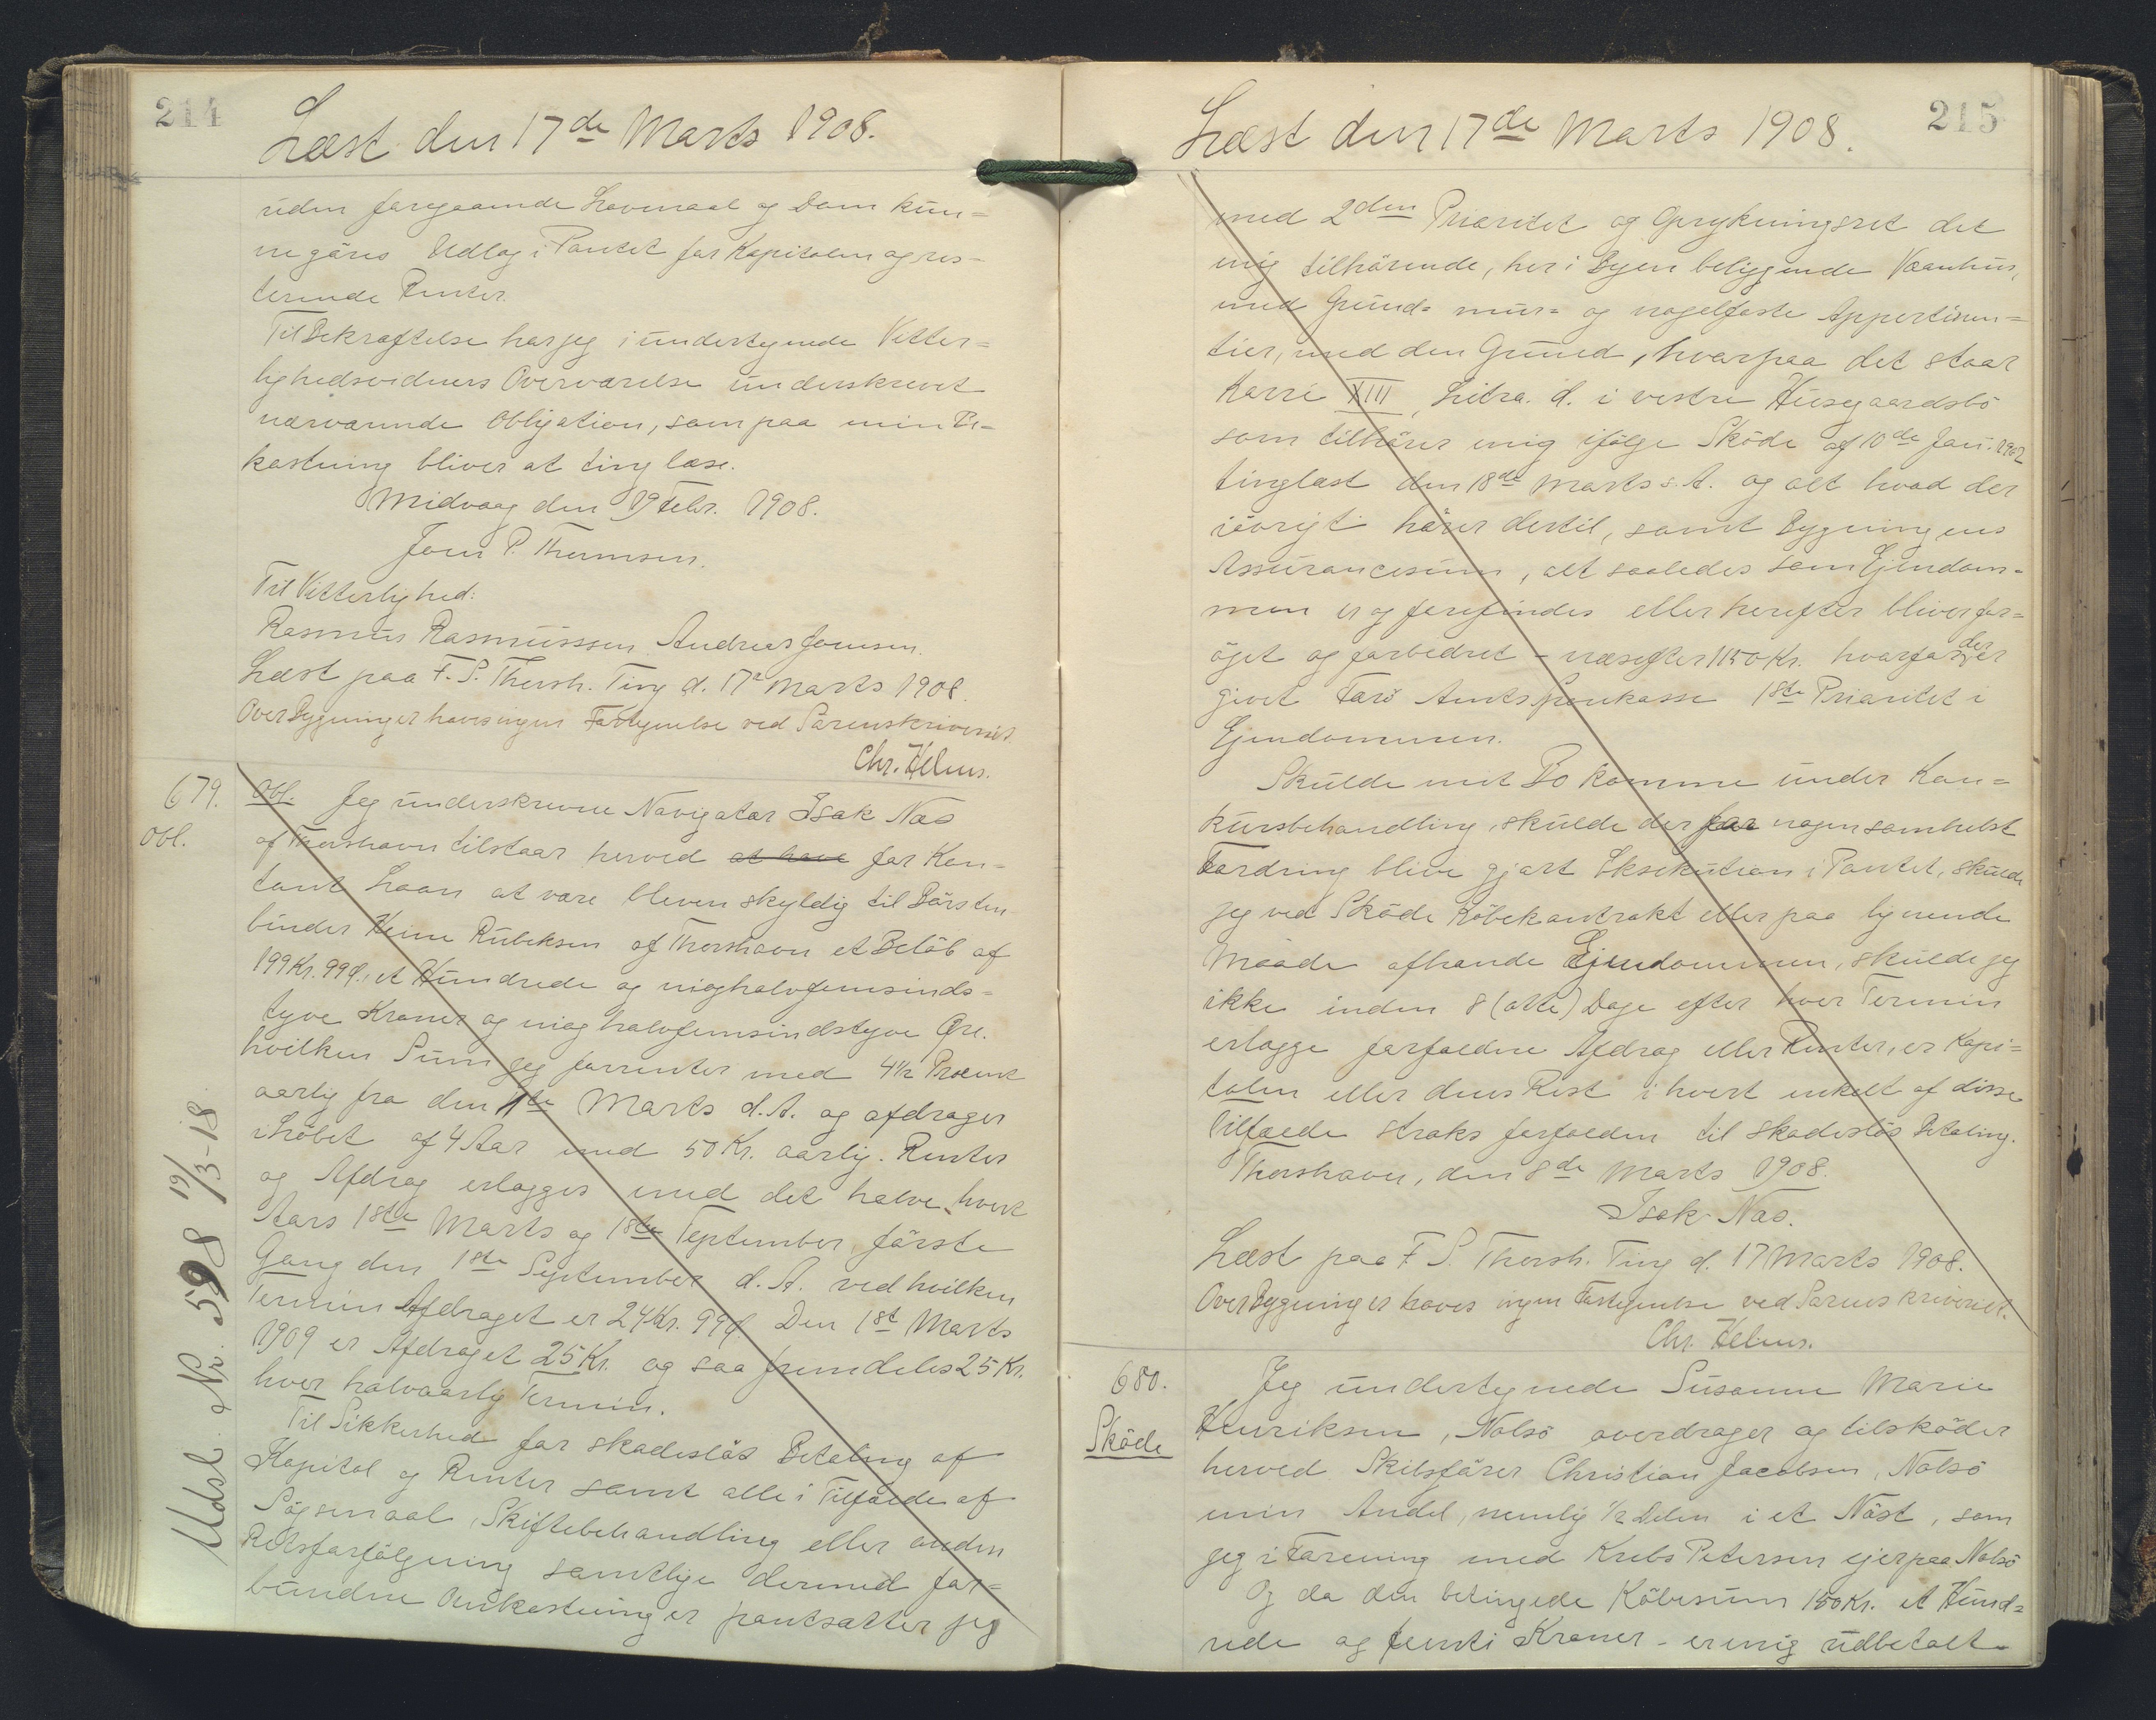 214
Læst den 17de Marts 1908.
uden foregaaende Lovmaal og Dom kun=
ne göres Udlæg i Pantet for Kapitalen og res=
terende Renter.
Til Bekræftelse har jeg i undertegnede Vitter=
lighedsvidners Overværelse underskrevet
nærværende Obligation, som paa min Be=
kostning bliver at tinglæse.
Midvaag den 19 Febr. 1908.
Joen P. Thomsen.
Til Vitterlighed:
Rasmus Rasmussen. Andreas Joensen.
Læst paa F. S. Thorsh. Ting d. 17de Marts 1908.
Over Bygninger haves ingen Fortegnelse ved Sorenskriveriet.
Chr. Helms.
679.
Obl.
Obl. Jeg underskrevne Navigatør Isak Næs
af Thorshavn tilstaar herved at have for Kon=
tant Laan at være bleven skyldig til Börsten
binder Heine Rubeksen af Thorshavn et Belöb af
199 Kr. 99 Ø., et Hundrede og nioghalvfemsinds=
tyve Kroner og nioghalvfemsindstyve Øre.
hvilken Sum jeg forrenter med 4 1/2 Procent
aarlig fra den 1ste Marts d. A. og afdrager
i Löbet af 4 Aar med 50 Kr. aarlig. Renter
og Afdrag erlægges med det halve hvert
Aars 1ste Marts og 1ste September, förste
Gang den 1ste September d. A. ved hvilken
Termin Afdraget er 24 Kr. 99 Ø. Den 1ste Marts
1909 er Afdraget 25 Kr. og saa fremdeles 25 Kr.
hver halvaarlig Termin.
Til Sikkerhed for skadeslös Betaling af
Kapital og Renter samt alle i Tilfælde af
Sögsmaal, Skiftebehandling eller anden
Retsforfölgning samtlige dermed for=
bundne Omkostninger pantsætter jeg
Udsl. Nr. 598 19/3-18
215
Læst den 17de Marts 1908.
med 2den Prioritet og Oprykningsret det
mig tilhörende, her i Byen beliggende Vaanhus,
med Grund= mur= og nagelfaste Appertinen=
tier, med den Grund, hvorpaa det staar
Karré XIII, Litra. d. i vestre Husegaardsbö
som tilhörer mig ifölge Sköde af 10de Jan. 1902
tinglæst den 18de Marts s. A. og alt hvad der
iövrigt hörer dertil, samt Bygningens
Assurancesum, alt saaledes som Ejendom=
men er og forefindes eller herefter bliver for=
öget og forbedret - næsefter 1150 Kr. hvorfor der er
givet Færö Amts Sparekasse 1ste Prioritet i
Ejendommen.
Skulde mit Bo komme under Kon=
kursbehandling, skulde der for nogensomhelst
Fordring blive gjort Eksekution i Pantet, skulde
jeg ved Sköde Köbekontrakt eller paa lignende
Maade afhænde Ejendommen, skulde jeg
ikke inden 8 (otte) Dage efter hver Termin
erlægge forfaldne Afdrag eller Renter, er Kapi=
talen eller dens Rest i hvert enkelt af disse
Tilfælde straks forfalden til skadeslös Betaling.
Thorshavn, den 8de Marts 1908.
Isak Næs.
Læst paa F. S. Thorsh. Ting d. 17 Marts 1908.
Over Bygninger haves ingen Fortegnelse ved Sorenskriveriet.
Chr. Helms.
680.
Sköde
Jeg undertegnede Susanne Marie
Henriksen, Nolsö overdrager og tilsköder
herved Skibsförer Christian Jacobsen, Nolsö
min Andel, nemlig 1/2 Delen i et Nöst, som
jeg i Forening med Krebs Petersen ejer paa Nolsö
Og da den betingede Köbesum 150 Kr. et Hund=
rede og femti Kroner - er mig udbetalt -